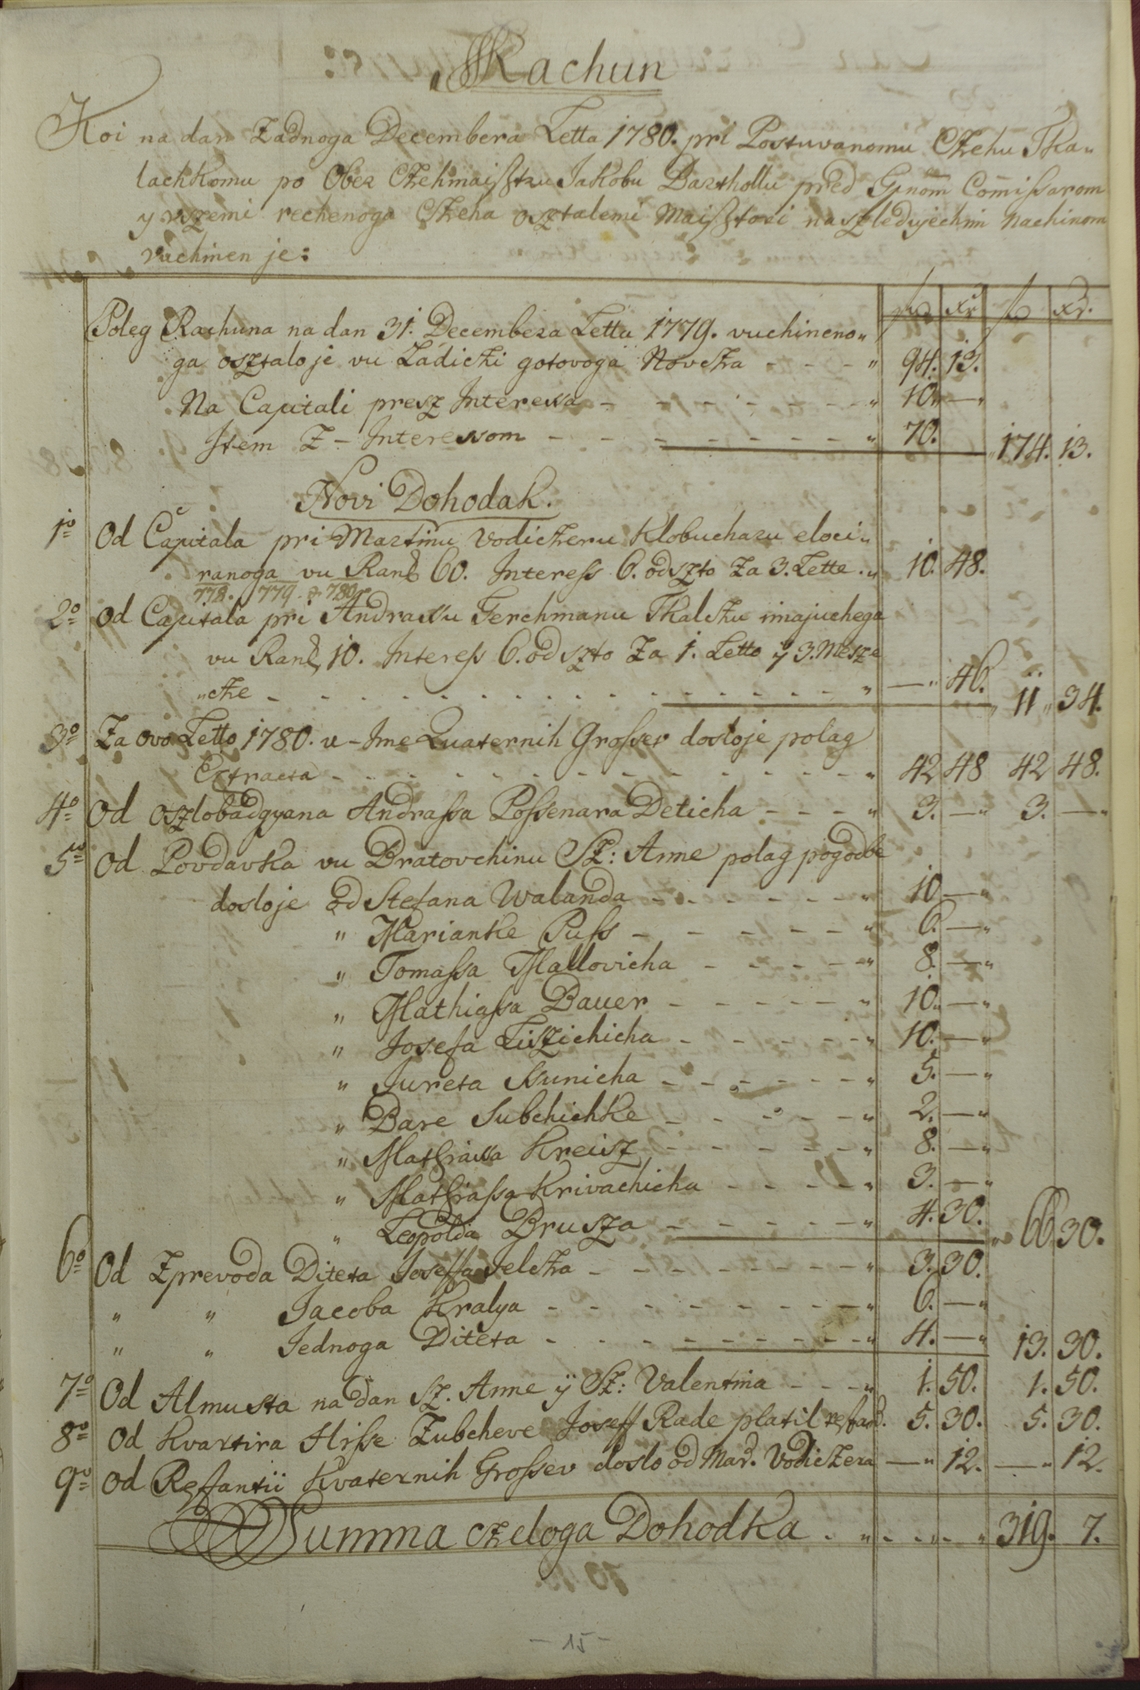 Rachun
Koi na dan Zadnoga Decembera Letta 1780. pri Postuvanomu Czehu Tka„
lachkomu po Ober Czehmaisztru Jakobu Barthollu pred Gpnom Comissarom
y vszemi rechenoga Czeha osztalemi Maisztori naszledujechim nachinom
vachinen je:
fl xr fl xr.
Poleg Rachuna na dan 31. Decembera Letta 1779. vuchineno„
ga osztalo je vu Ladichi gotovoga Novcza - - - „ 94. 13.
Na Capitali presz Interessa - - - - - - „ 10. —„
Item Z - Interessom - - - - - - - „ 70. 174. 13.
Novi Dohodak.
1o Od Capitala pri Martinu Vodiczeru Klobucharu eloci„
ranoga vu Ranl 60. Interess 6. od szto Za 3. Lette. „ 10. 48.
778. 779. & 780.
2o Od Capitala pri Andrassu Ferchmanu Tkalczu imajuchega
vu Ranl 10. Interess 6. od szto Za 1. Letto ÿ 3. Mesze
„cze - - - - - - - - - - „ —„ 46. 11„ 34.
3o Za ovo Letto 1780. u - Ime Quaternih Grosser dosloje polag
Extracta - - - - - - - - - „ 42 48 42 48.
4o Od oszlobadgyana Andrassa Possenara Deticha - - - „ 3. —„ 3. —„
5o Od Povdavka vu Bratovchinu Sz: Anne polag pogodbe
dosloje od Stefana Walanda - - - - - - „ 10 —„
„ Marianke Puss - - - - - - „ 6. —„
„ Tomassa Mallovicha - - - - - „ 8. —„
„ Mathiassa Bauer - - - - - „ 10. —„
„ Josefa Liszichicha - - - - - „ 10. —„
„ Jureta Ssunicha - - - - - „ 5. —„
„ Bare Subchichke - - - - - „ 2. —„
„ Mathiassa Kreisz - - - - - „ 8. —„
„ Mathiassa Krivachicha - - - - „ 3. —„
„ Leopolda Brusza - - - - - „ 4. 30. „ 66 30.
6o Od Zprevoda Diteta Josefa Jelcza - - - - - - „ 3. 30.
„ „ Jacoba Kralya - - - - - - - „ 6. —„
„ „ Jednoga Diteta - - - - - - - „ 4. —„ 13. 30.
7o Od Almusta na dan Sz. Anne ÿ Sz: Valentina - - - „ 1. 50. 1. 50.
8o Od Kvartira Hisse Zubcheve Joseff Rade platil restand. 5. 30. 5. 30.
9o Od Restantii Kvaternih Grossev doslo od Mar. Vodiczera —„ 12. —„ 12.
Summa czeloga Dohodka . „ - . „. - „ 319. 7.
- 15 -